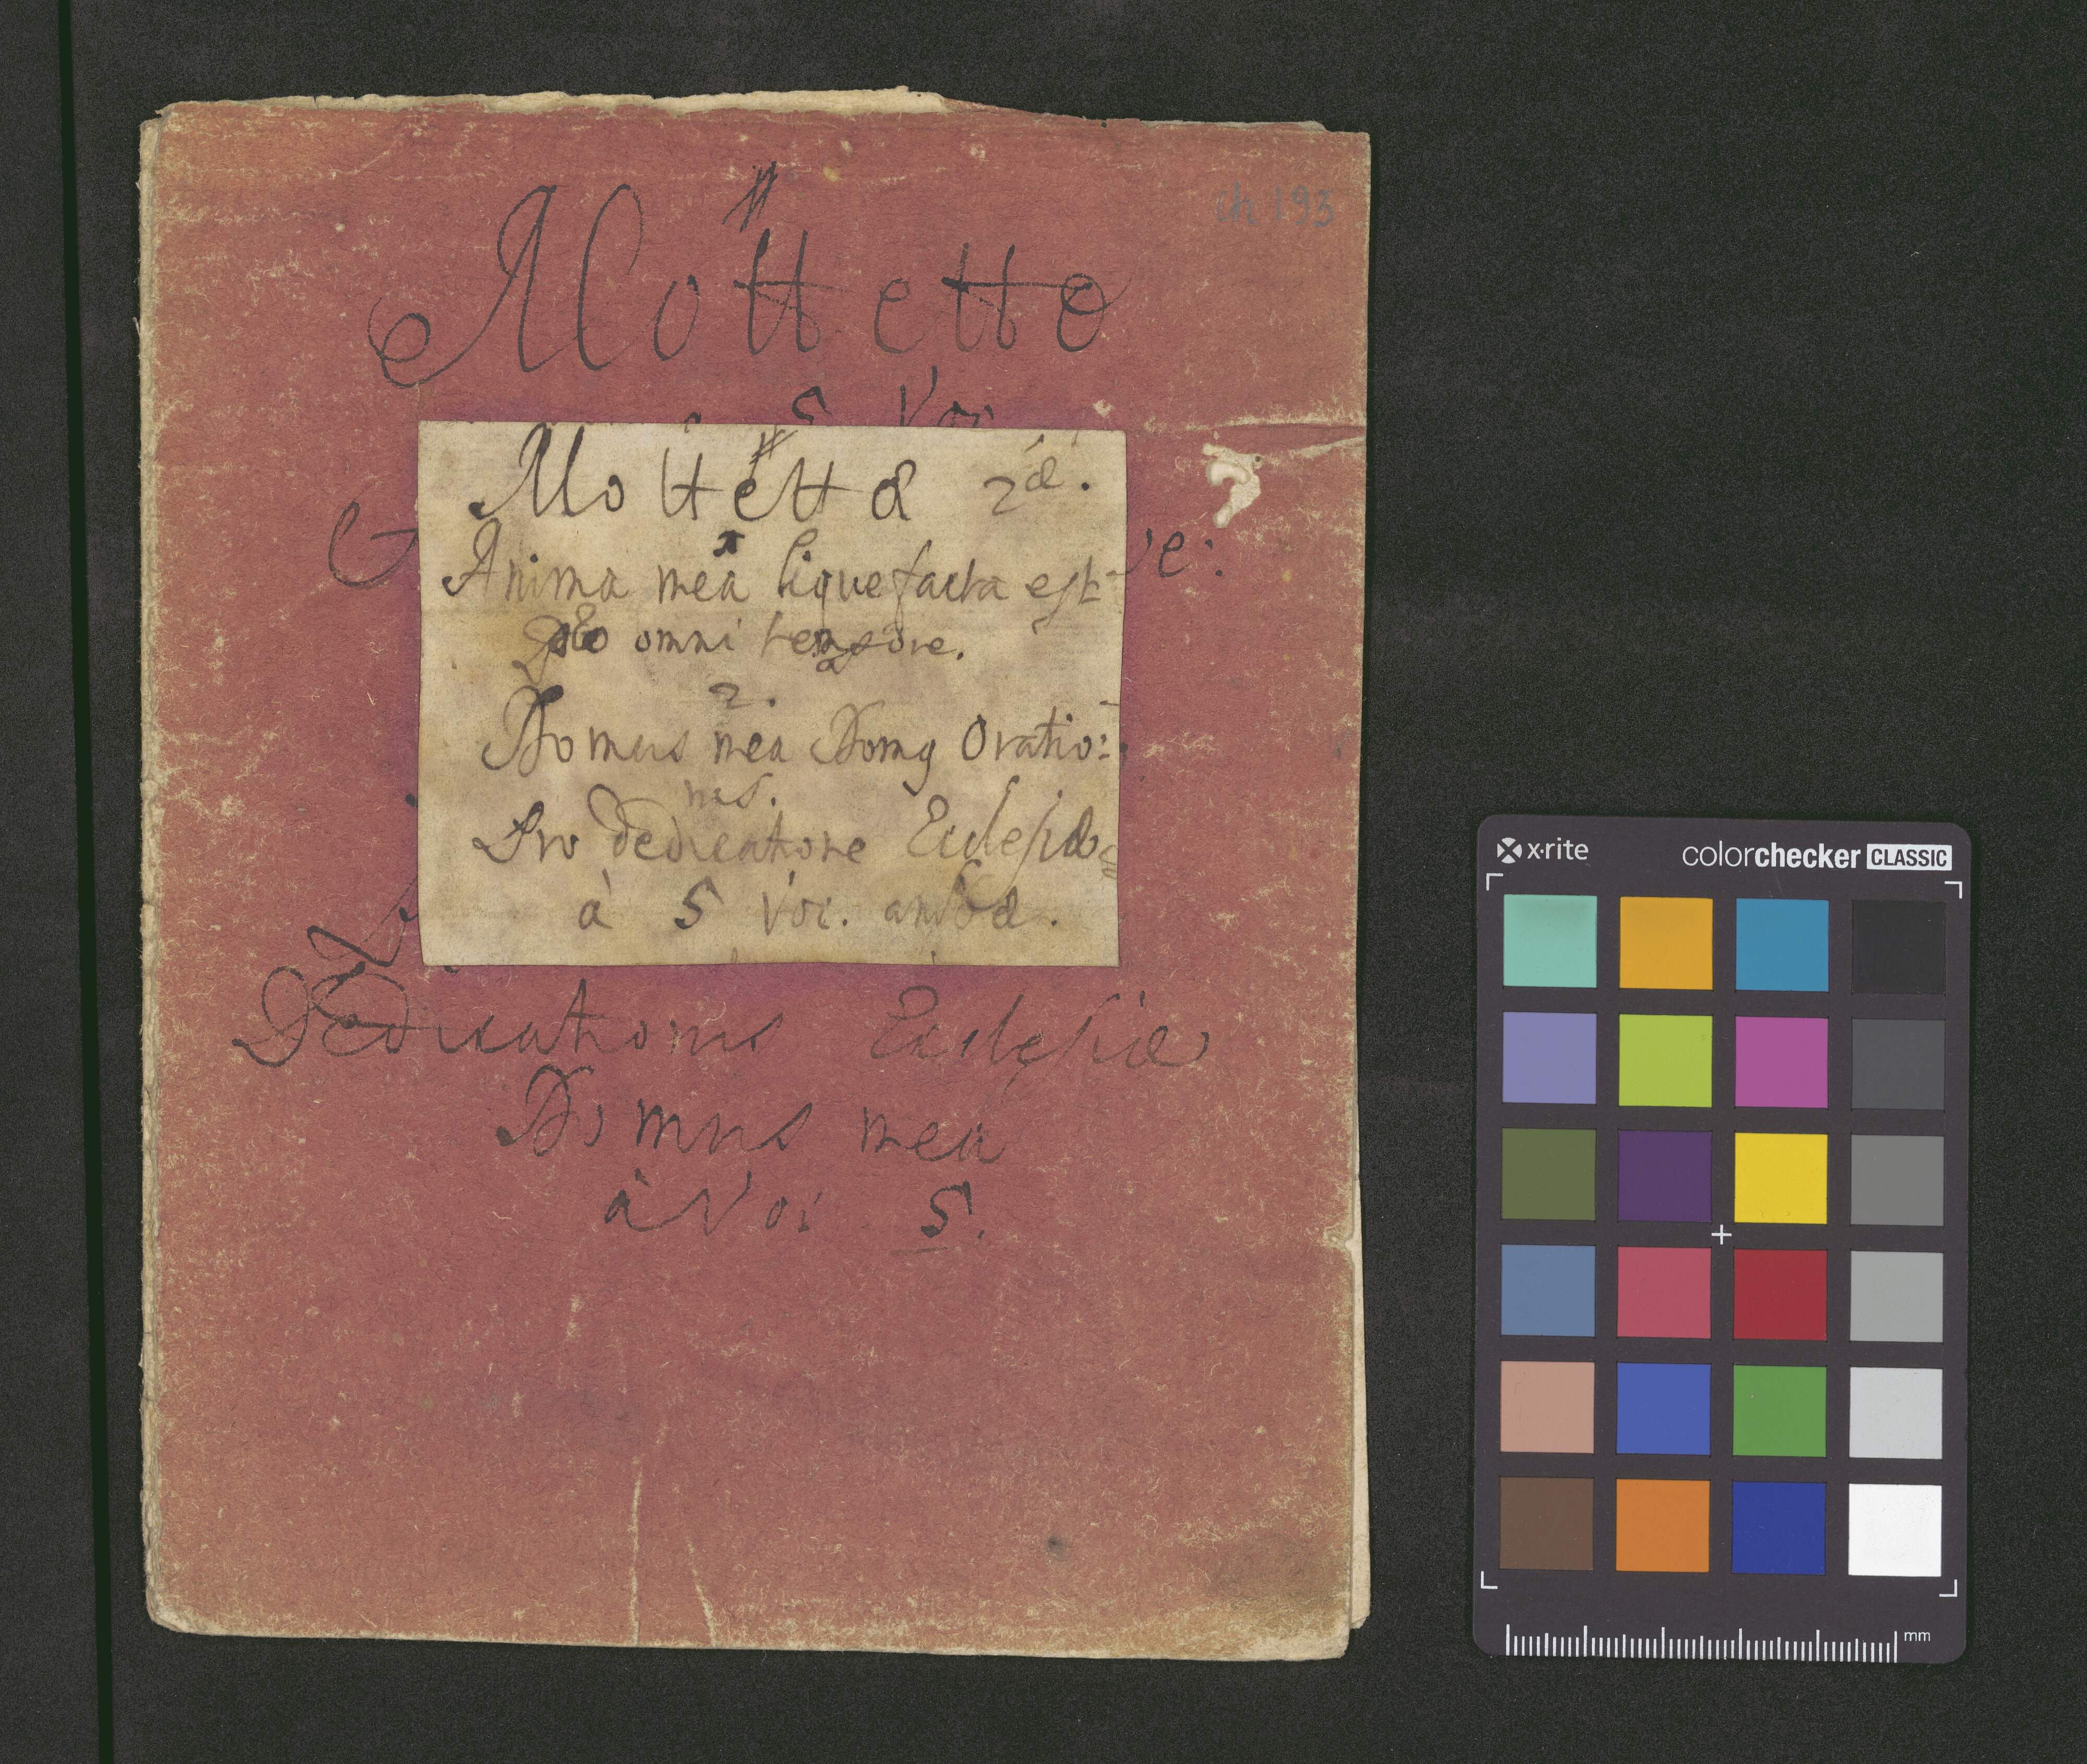 ch 193
Mottetto
5 Voi
Mottettæ 2æ.
Anima mea liquefacta est
omni tempore.
2.
Domus mea Domq Oratio:
nis.
Pro dedicatione Eclesiæ
à 5 Voi. ambæ.
Dedicationis Eclesiæ
Domus mea
à Voi 5.
x·rite
colorchecker CLASSIC
mm